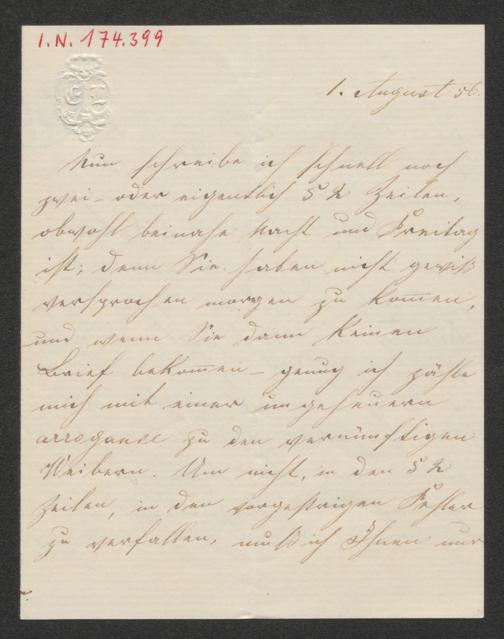 I.N. 174.399
1. August 56.
Nun schreibe ich schnell noch
zwei - oder eigentlich 52 Zeilen,
obwohl beinahe Nacht und Freitag
ist; denn Sie haben nicht gewiß
versprochen morgen zu kom̅en,
und wenn Sie dann keinen
Brief bekom̅en - genug ich zähle
mich mit einer ungeheuern
arroganee zu den vernünftigen
Weibern. Um nicht, in den 52
Zeilen, in den vorgestrigen Fehler
zu verfallen, muß ich Ihnen nur